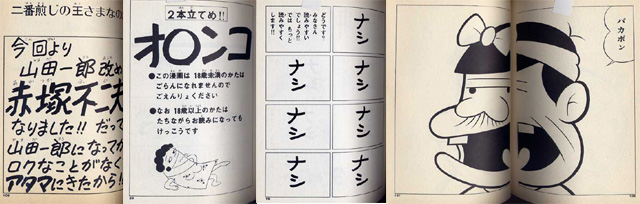 二番煎じの王さまなのだ
今回より
山田一郎改め
赤塚不二夫
なりました!! だって
山田一郎になってか
ロクなことがなく
アタマにきたから!!
2本立てめ!!
オ〇ンコ
●この漫画は 18歳未満のかたは
ごらんになれませんので
ごえんりょください
●なお 18歳以上のかたは
たちながらお読みになっても
けっこうです
どうです?
みなさん
読みやすい
でしょう!!
では もっと
読みやすく
します!!
ナシ
ナシ
ナシ
ナシ
ナシ
ナシ
ナシ
バカボン